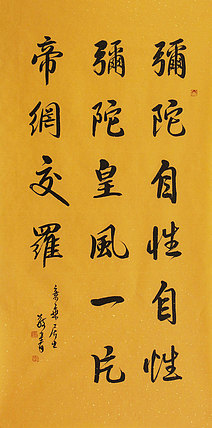 彌陀自性自性
彌陀皇風一片
帝網交羅